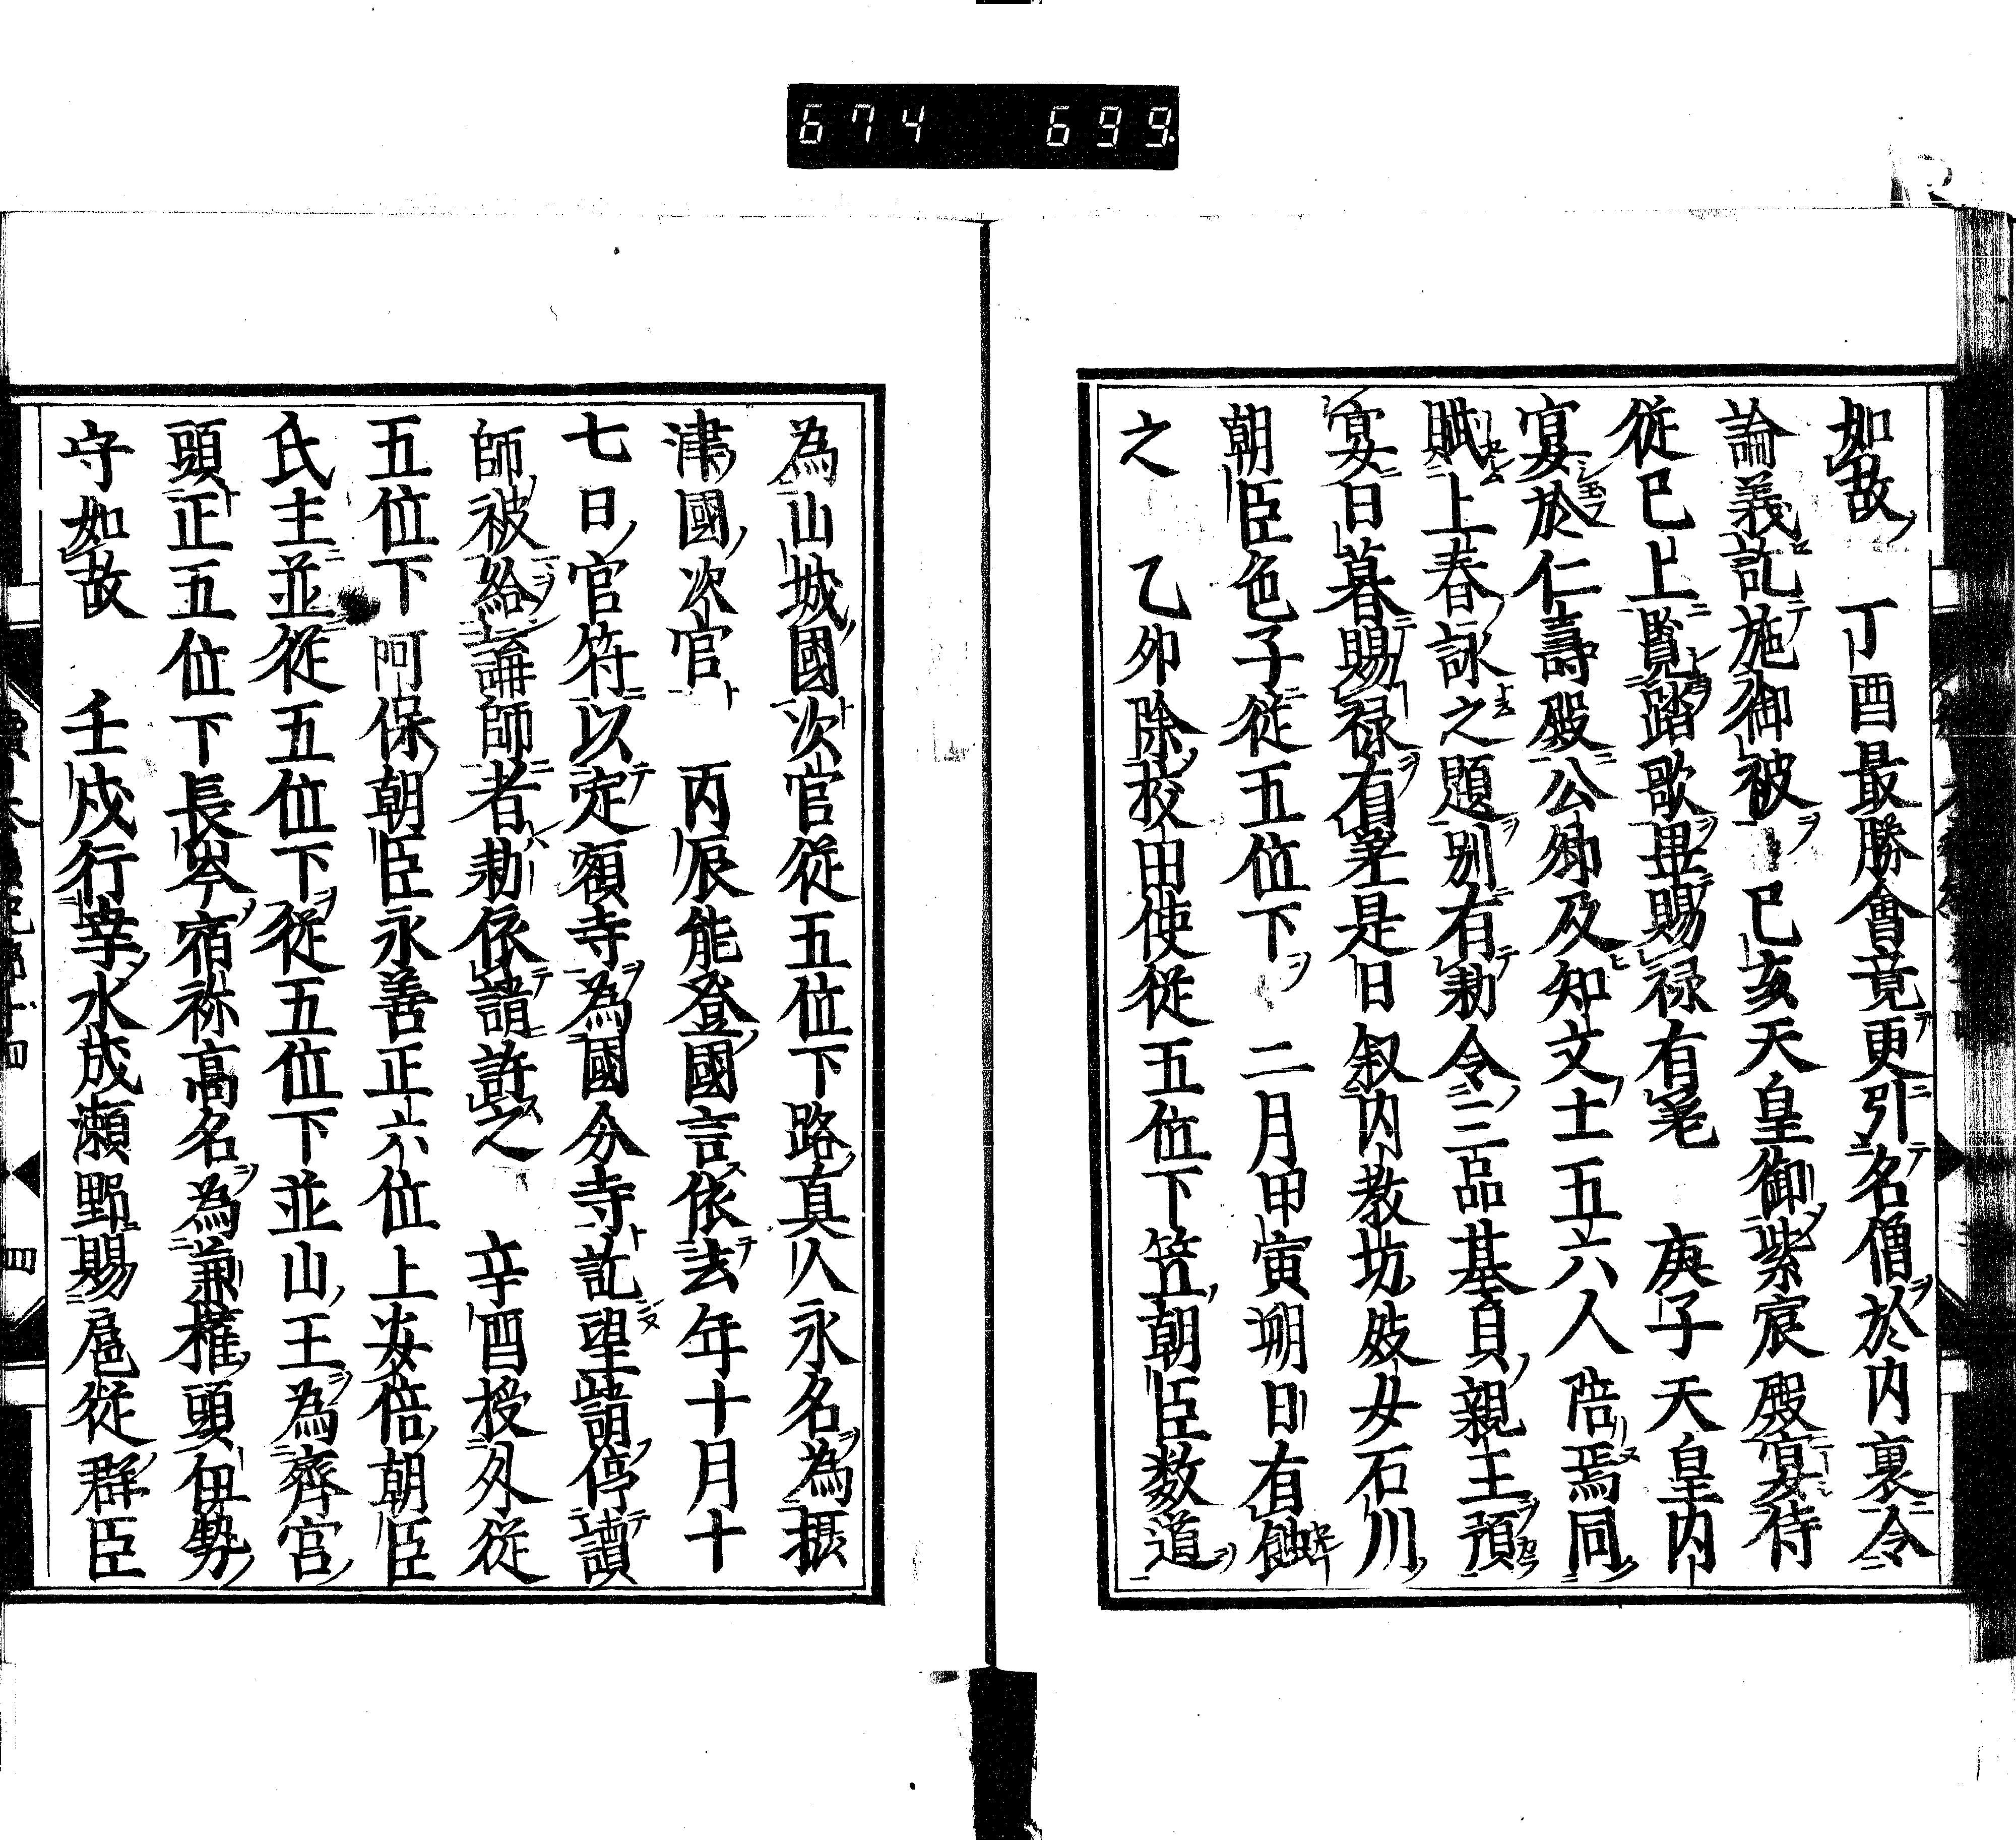 674 699
如故　丁酉最勝會竟更引名僧於内裏令
論義訖施御被　己亥天皇御紫宸殿宴侍
從已上覧踏歌畢賜禄有差　庚子天皇内
宴於仁壽殿公卿及知文士五六人陪焉同
賦上春詠之題別有勅令三品基貞親王預
宴日暮賜禄有差是日叙内教坊妓女石川
朝臣色子從五位下　二月甲寅朔日有蝕
之　乙卯除校田使從五位下笠朝臣数道
為山城國次官從五位下路真人永名為摂
津國次官　丙辰能登國言依去年十月十
七日官符以定額寺為國分寺訖望請停讀
師被給講師者勅依請許之　辛酉授外從
五位下阿保朝臣永善正六位上安倍朝臣
氏主並從五位下從五位下並山王為齊宮
頭正五位下長岑宿祢高名為兼權頭伊勢
守如故　壬戌行幸水成瀬野賜扈從群臣
四